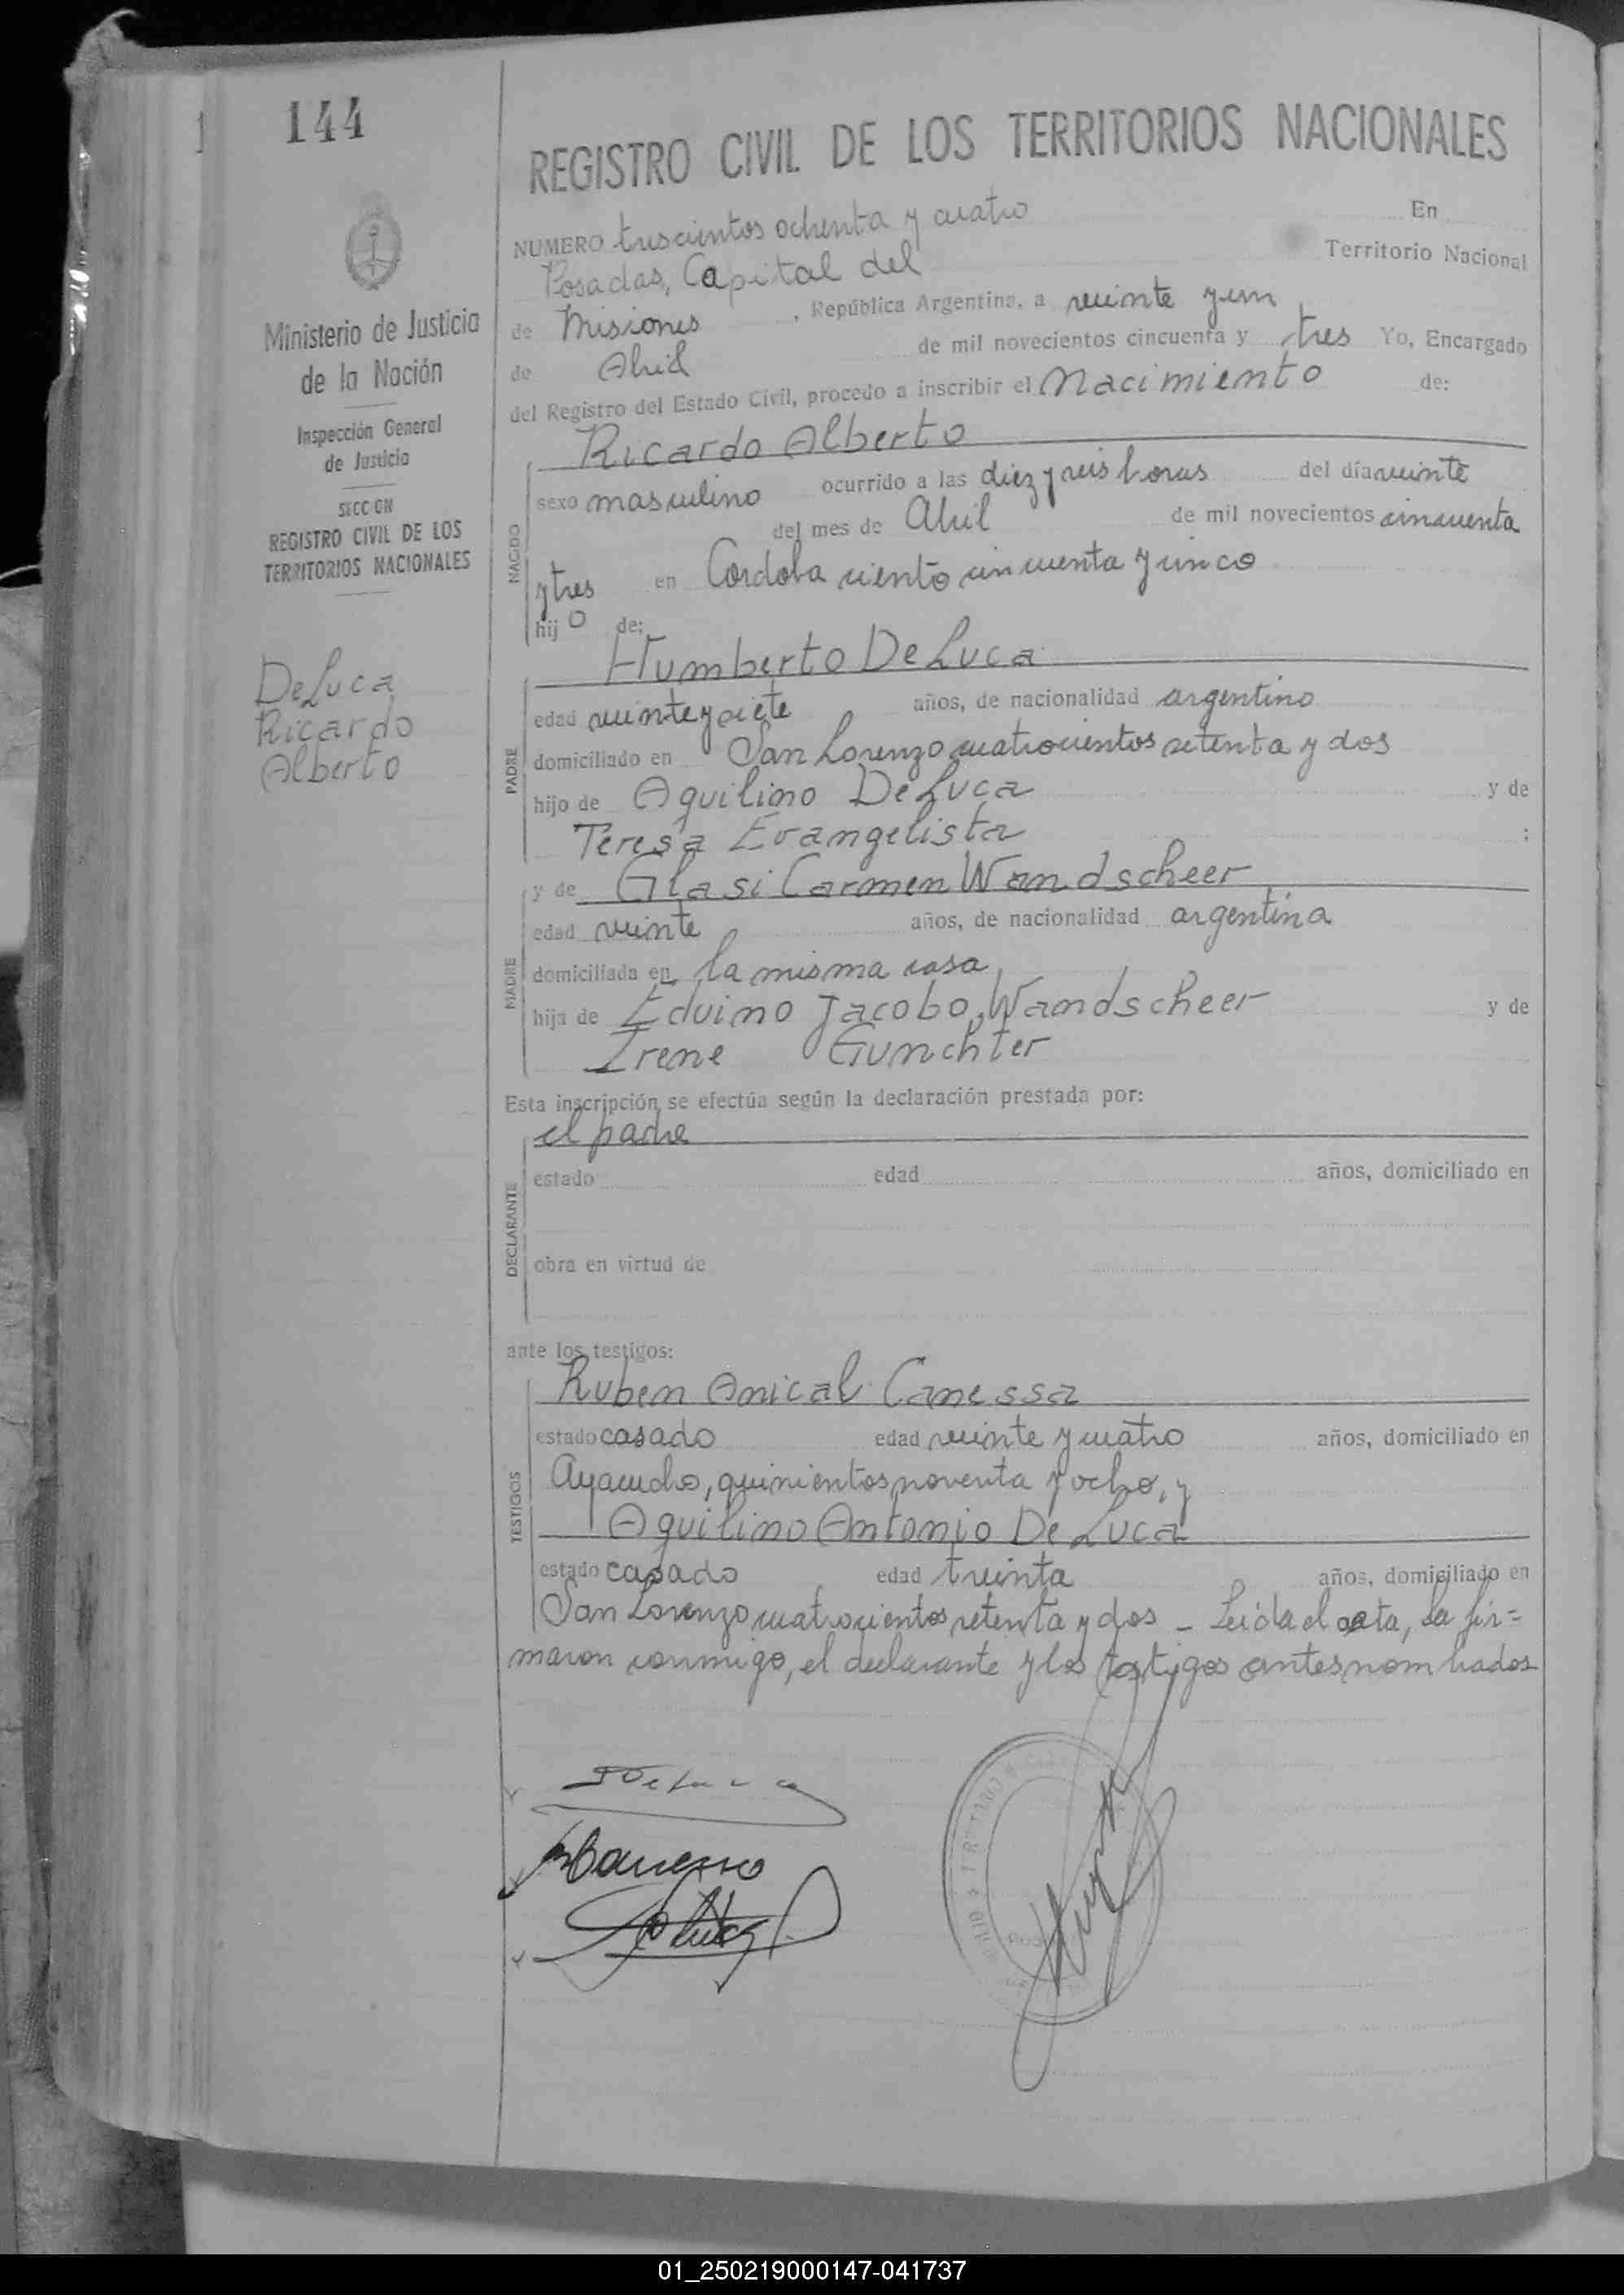 144
REGISTRO CIVIL DE LOS TERRITORIOS NACIONALES
NUMERO trescientos ochenta y cuatro En
Posadas, Capital del Territorio Nacional
de Misiones, República Argentina, a veinte y un
de Abril de mil novecientos cincuenta y tres Yo, Encargado
del Registro del Estado Civil, procedo a inscribir el Nacimiento de:
Ricardo Alberto
sexo masculino ocurrido a las diez y seis horas del día veinte
del mes de Abril de mil novecientos cincuenta
y tres en Cordoba ciento cincuenta y cinco
hijo de:
NACIDO
Humberto De Luca
edad veinte y siete años, de nacionalidad argentino
domiciliado en San Lorenzo cuatrocientos setenta y dos
hijo de Aquilino De Luca y de
Teresa Evangelista ;
PADRE
y de Glasi Carmen Wandscheer
edad veinte años, de nacionalidad argentina
domiciliada en la misma casa,
hija de Eduino Jacobo Wandscheer y de
Irene Gunchter
MADRE
Esta inscripción se efectúa según la declaración prestada por:
el padre
estado edad años, domiciliado en
obra en virtud de
DECLARANTE
ante los testigos:
Ruben Anical Canessa
estado casado edad veinte y cuatro años, domiciliado en
Ayacucho, quinientos noventa y ocho, y
Aquilino Antonio De Luca
estado casado edad treinta años, domiciliado en
San Lorenzo cuatrocientos setenta y dos - Leída el acta, la fir=
maron conmigo, el declarante y los testigos antes nombrados
TESTIGOS
Ministerio de Justicia
de la Nación
Inspección General
de Justicia
SECCION
REGISTRO CIVIL DE LOS
TERRITORIOS NACIONALES
De Luca
Ricardo
Alberto
01_250219000147-041737